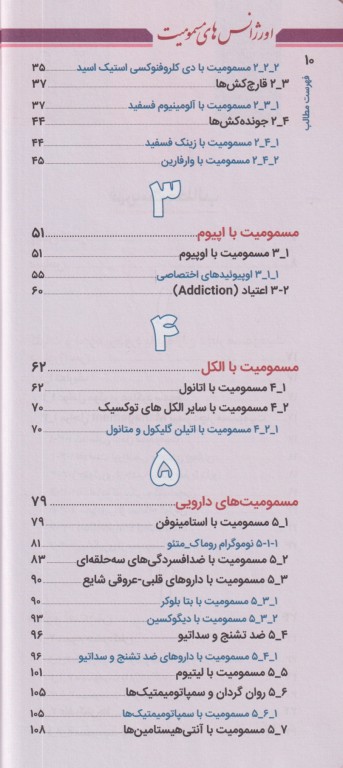 اورژانس های مسمومیت
۱۰
فهرست مطالب
۲_۲_۲ مسمومیت با دی کلروفنوکسی استیک اسید ۳۵
۲_۳ قارچ‌کش‌ها ۳۷
۲_۳_۱ مسمومیت با آلومینیوم فسفید ۳۷
۲_۴ جونده‌کش‌ها ۴۴
۲_۴_۱ مسمومیت با زینک فسفید ۴۴
۲_۴_۲ مسمومیت با وارفارین ۴۵
۳
مسمومیت با اپیوم ۵۱
۳_۱ مسمومیت با اوپیوم ۵۱
۳_۱_۱ اوپیوئیدهای اختصاصی ۵۵
۳-۲ اعتیاد (Addiction) ۶۰
۴
مسمومیت با الکل ۶۲
۴_۱ مسمومیت با اتانول ۶۲
۴_۲ مسمومیت با سایر الکل های توکسیک ۷۰
۴_۲_۱ مسمومیت با اتیلن گلیکول و متانول ۷۰
۵
مسمومیت‌های دارویی ۷۹
۵_۱ مسمومیت با استامینوفن ۷۹
۵-۱-۱ نوموگرام روماک_متئو ۸۱
۵_۲ مسمومیت با ضدافسردگی‌های سه‌حلقه‌ای ۸۳
۵_۳ مسمومیت با داروهای قلبی-عروقی شایع ۹۰
۵_۳_۱ مسمومیت با بتا بلوکر ۹۰
۵_۳_۲ مسمومیت با دیگوکسین ۹۳
۵_۴ ضد تشنج و سداتیو ۹۶
۵_۴_۱ مسمومیت با داروهای ضد تشنج و سداتیو ۹۶
۵_۵ مسمومیت با لیتیوم ۱۰۱
۵_۶ روان گردان و سمپاتومیمتیک‌ها ۱۰۵
۵_۶_۱ مسمومیت با سمپاتومیمتیک‌ها ۱۰۵
۵_۷ مسمومیت با آنتی‌هیستامین‌ها ۱۰۸